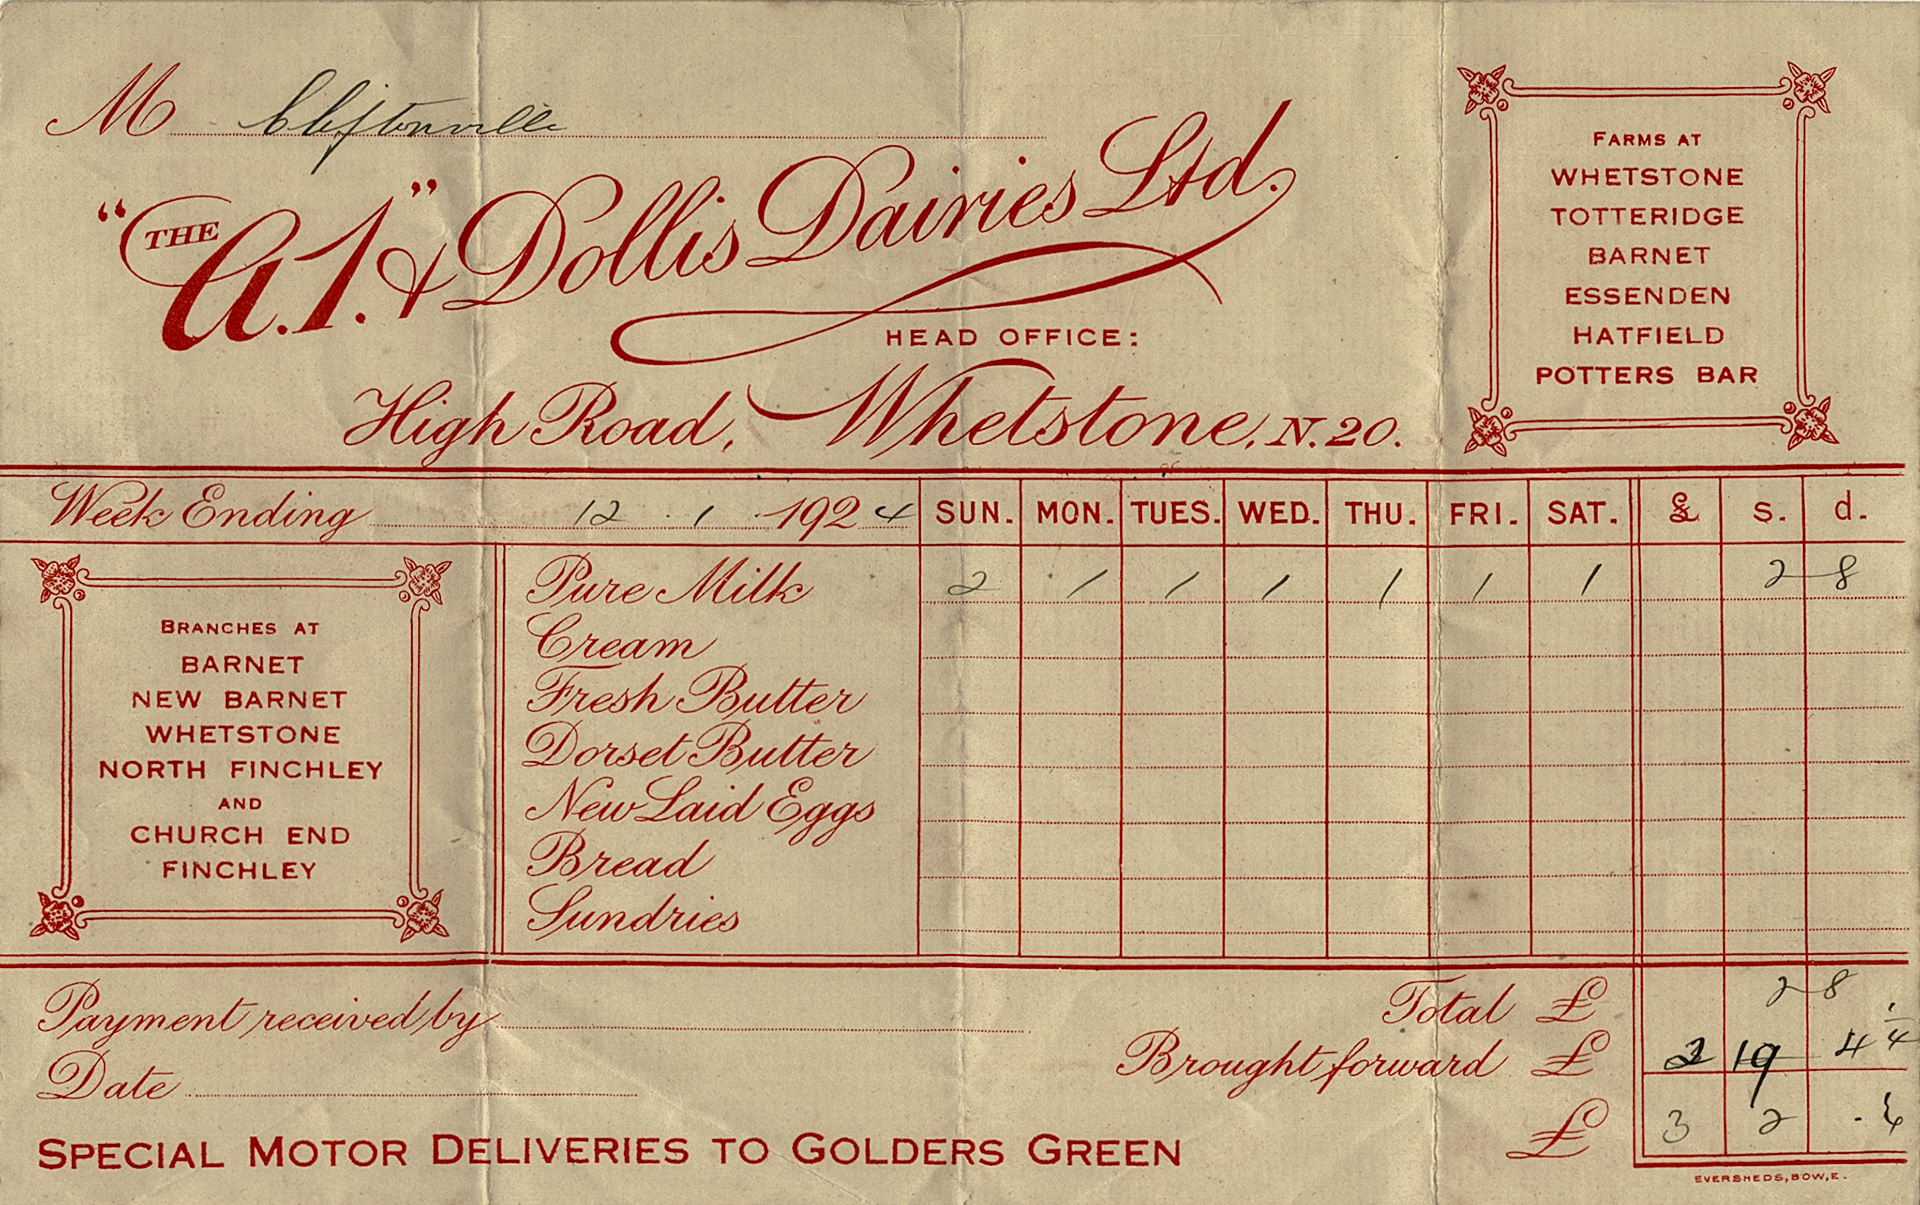 M Cliftonville
"THE A.1." & Dollis Dairies Ltd.
HEAD OFFICE:
High Road, Whetstone, N.20.
FARMS AT
WHETSTONE
TOTTERIDGE
BARNET
ESSENDEN
HATFIELD
POTTERS BAR
Week Ending 12 . 1 . 1924 SUN. MON. TUES. WED. THU. FRI. SAT. £ s. d.
BRANCHES AT
BARNET
NEW BARNET
WHETSTONE
NORTH FINCHLEY
AND
CHURCH END
FINCHLEY
Pure Milk 2 1 1 1 1 1 1 2 8
Cream
Fresh Butter
Dorset Butter
New Laid Eggs
Bread
Sundries
Payment received by
Date
Total £ 2 8
Brought forward £ 2 19 4 1/4
£ 3 2
SPECIAL MOTOR DELIVERIES TO GOLDERS GREEN
EVERSHEDS, BOW, E.